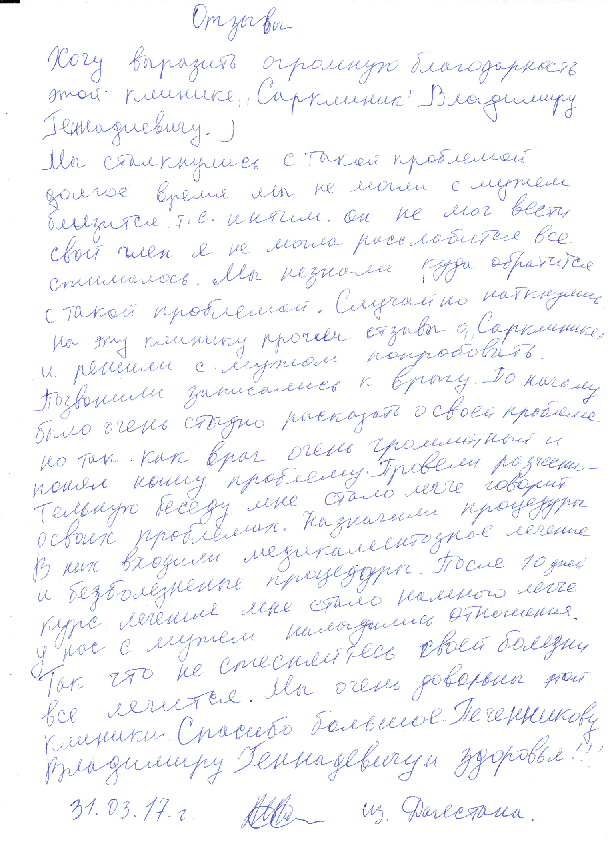 Отзывы
Хочу выразить огромную благодарность
этой клинике „Сарклиник" Владимиру
Геннадиевичу.
Мы сталкнулись с такой проблемой
долгое время мы не могли с мужем
близится т.е. интим. он не мог вести
свой член я не могла расслабится все
сжималось. Мы незнали куда обратится
с такой проблемой. Случайно наткнулись
на эту клинику прочли отзывы о „Сарклинике"
и решили с мужем попробовать.
Позвонили записались к врачу. По началу
было очень стыдно расказать о своей проблеме
но так как врач очень граммотный и
понял нашу проблему. Привели разъесни-
тельную беседу мне стало легче говорит
о своих проблемах. Назначили процедуры
В них входили медикаментозное лечение
и безболезненые процедуры. После 10 дней
курс лечение мне стало намного легче
у нас с мужем наладились отношения.
Так что не стесняйтесь своей болезни
все лечится. Мы очень довольны этой
клиники. Спасибо большое Печенникову
Владимиру Геннадевичу и здоровья!!!
31.03.17.г. из Дагестана.